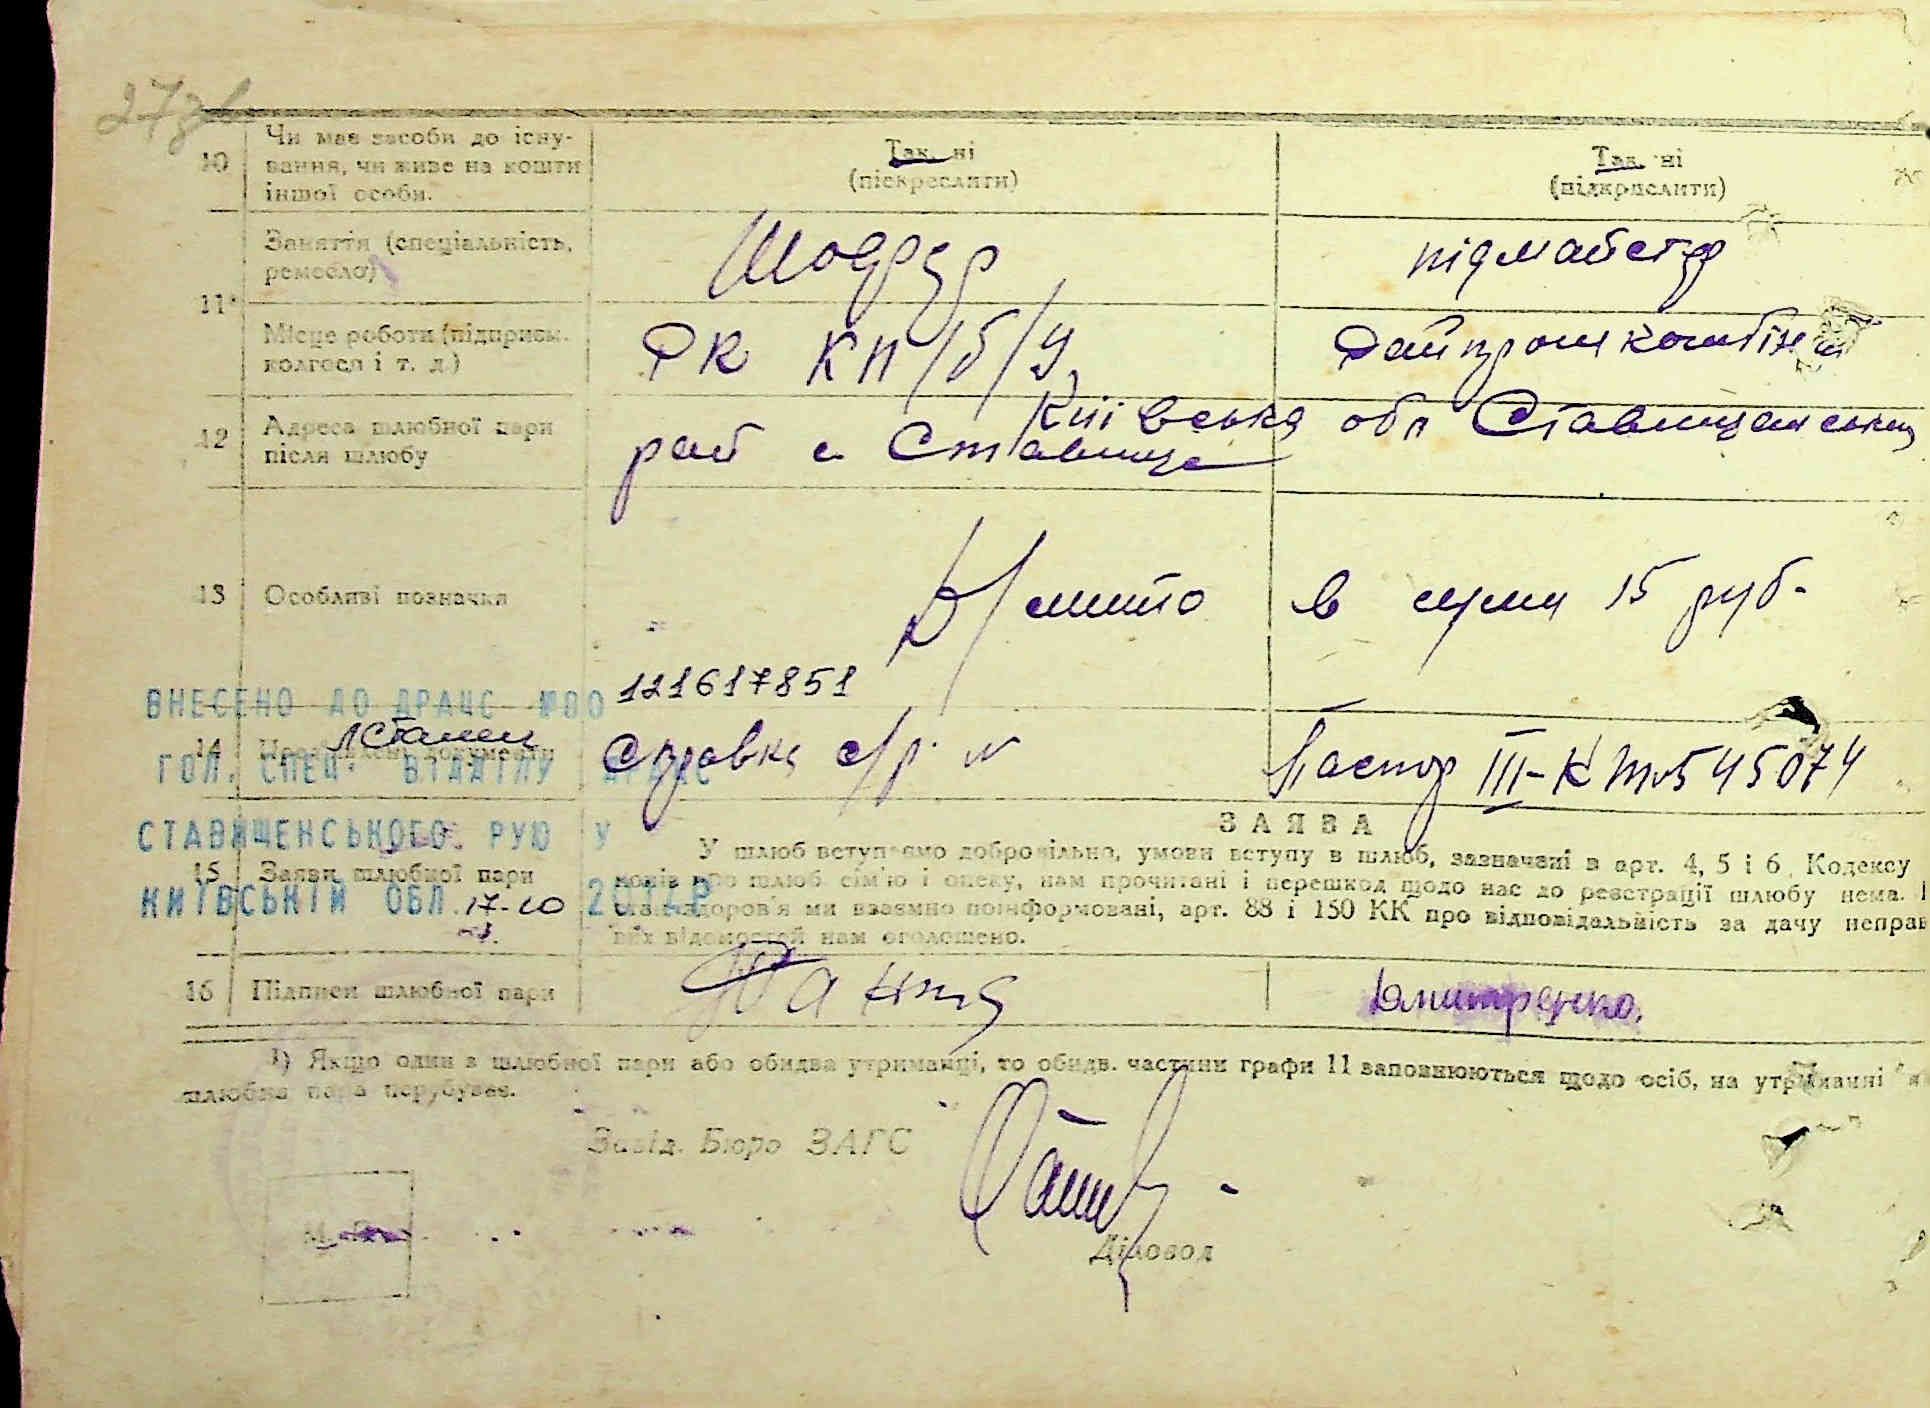 27зв
10 Чи має засоби до існу-
вання, чи живе на кошти
іншої особи.
Так, ні
(піскреслити)
Так, ні
(підкрислити)
11
Заняття (спеціальність,
ремесло)
Шофер
підмайстр
Місце роботи (підприєм.
колгосп і т. д.)
РК КП/б/У
Райпромкомбінат
12 Адреса шлюбної пари
після шлюбу
Київська обл Ставищанський
рай с. Ставище
13 Особливі позначки
Д/мито в сумі 15 руб.
ВНЕСЕНО ДО ДРАЧС №00 121617851
14
Справка с/р. №
Паспор III-КТ №545074
ГОЛ. СПЕЦ. ВІДДІЛУ ДРАЦС
СТАВИЩЕНСЬКОГО РУЮ У
КИЇВСЬКІЙ ОБЛ. 17-10 2012Р
15 Заяви шлюбної пари
ЗАЯВА
У шлюб вступаємо добровільно, умови вступу в шлюб, зазначені в арт. 4, 5 і 6 Кодексу
про шлюб сім'ю і опеку, нам прочитані і перешкод щодо нас до реєстрації шлюбу нема.
стан здоров'я ми взаємно поінформовані, арт. 88 і 150 КК про відповідальність за дачу неправ
вих відомостей нам оголошено.
16 Підписи шлюбної пари
Дмитренко.
1) Якщо один з шлюбної пари або обидва утриманці, то обидв. частини графи 11 заповнюються щодо осіб, на утриманні
шлюбна пара перубуває.
Завід. Бюро ЗАГС
М. П.
Діловод